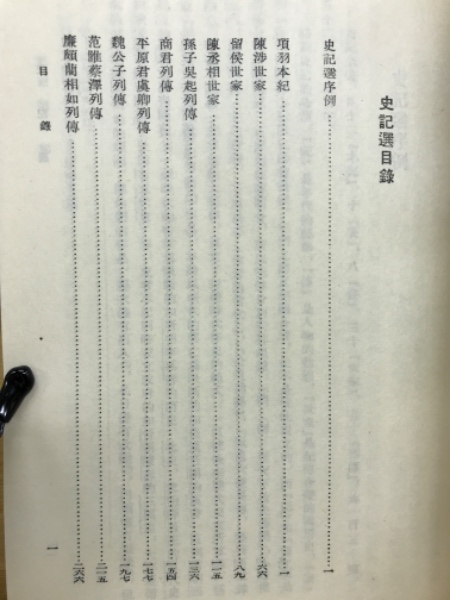 史記選目錄
史記選序例……一
項羽本紀……一
陳涉世家……六六
留侯世家……八九
陳丞相世家……一一五
孫子吳起列傳……一三六
商君列傳……一五四
平原君虞卿列傳……一七七
魏公子列傳……一九七
范雎蔡澤列傳……二一五
廉頗藺相如列傳……二六六
目錄
一